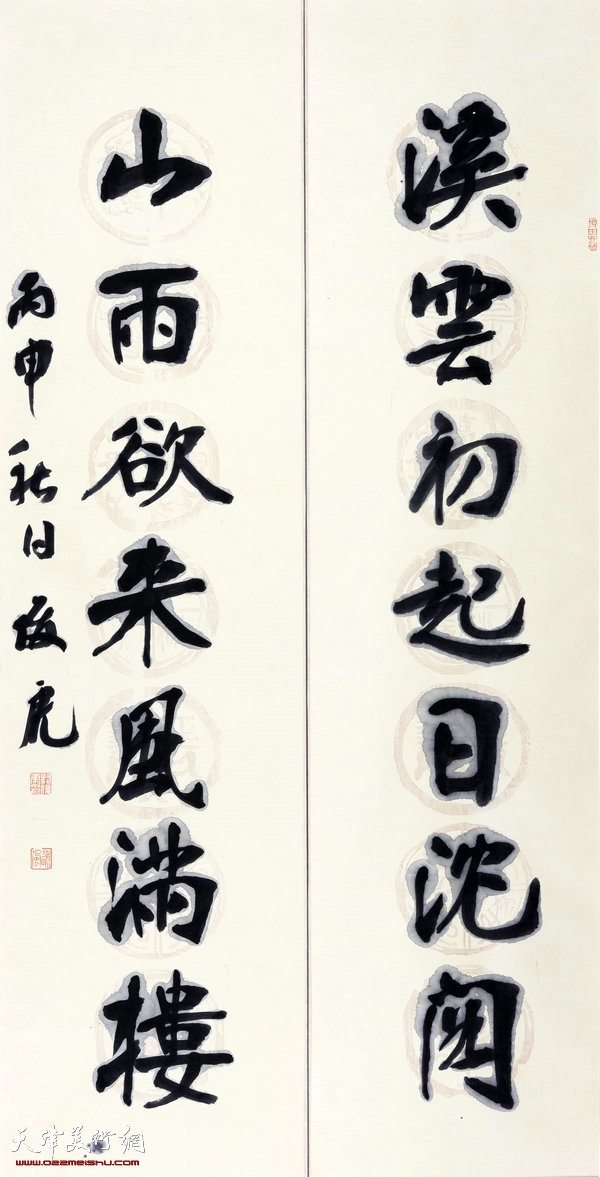 溪雲初起日沈閣
山雨欲来風滿樓
丙申秋日
天津美術網
www.022meishu.com